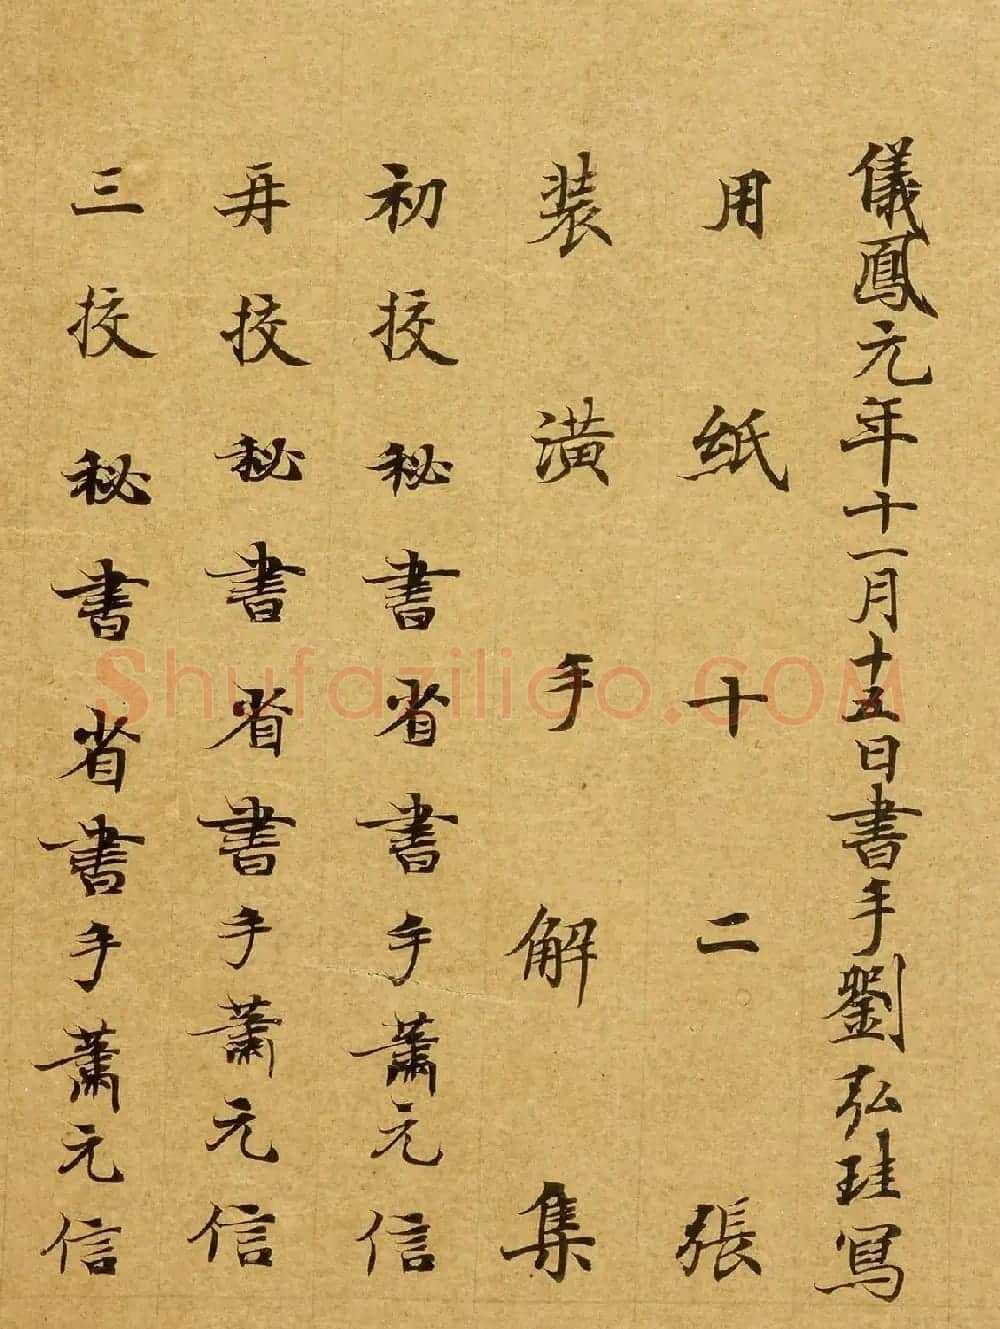 儀鳳元年十一月十五日書手劉弘珪寫
用紙十二張
裝潢手解集
初挍秘書省書手蕭元信
再挍秘書省書手蕭元信
三挍秘書省書手蕭元信
Shufaziliao.COM